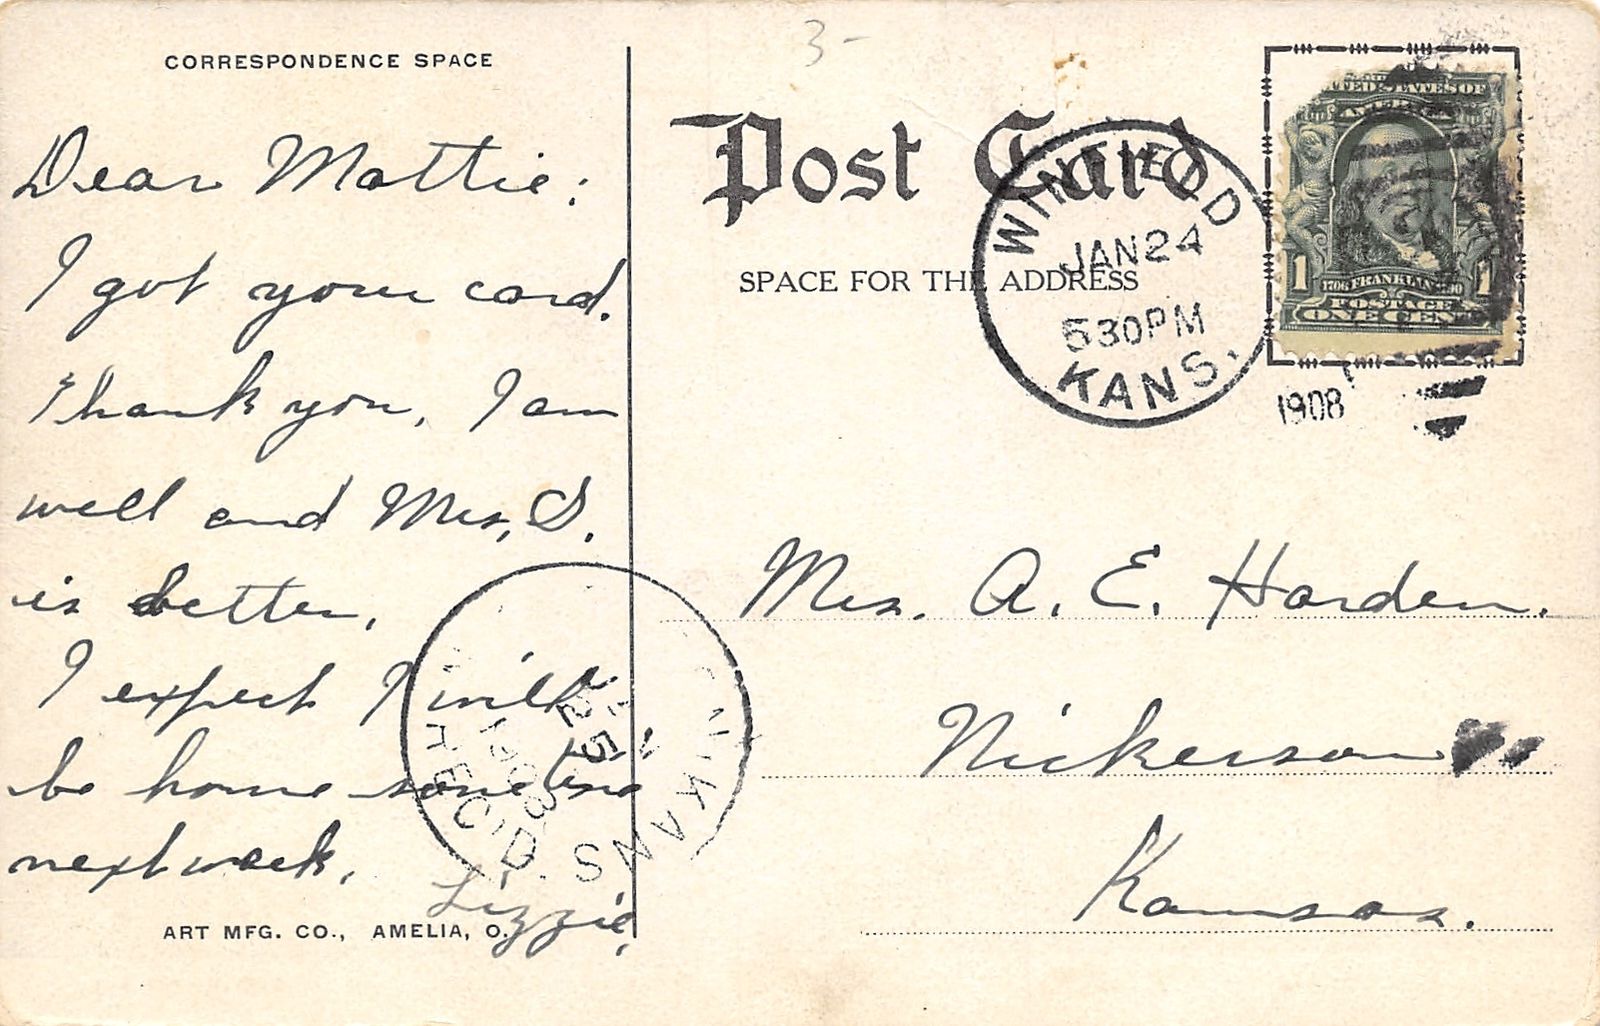 3-
CORRESPONDENCE SPACE
Dear Mattie:
I got your card.
Thank you, I am
well and Mrs, S.
is better,
I expect I will
be home sometime
next week,
Lizzie,
ART MFG. CO., AMELIA, O.
Post Card
SPACE FOR THE ADDRESS
WINFIELD
JAN 24
530PM
KANS.
1908
UNITED STATES OF
AMERICA
1 1706 FRANKLIN 1790 1
POSTAGE
ONE CENT
Mrs. A. E. Harden.
Nickerson
Kansas.
KANS.
25
1908
REC'D.